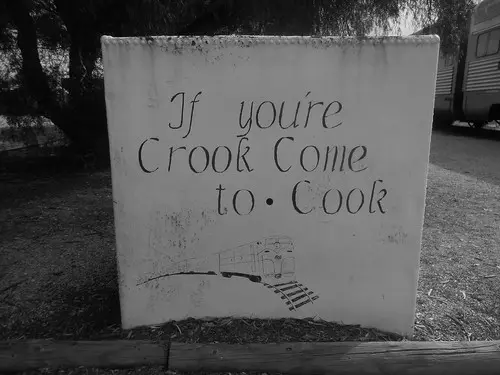 If you're
Crook Come
to • Cook